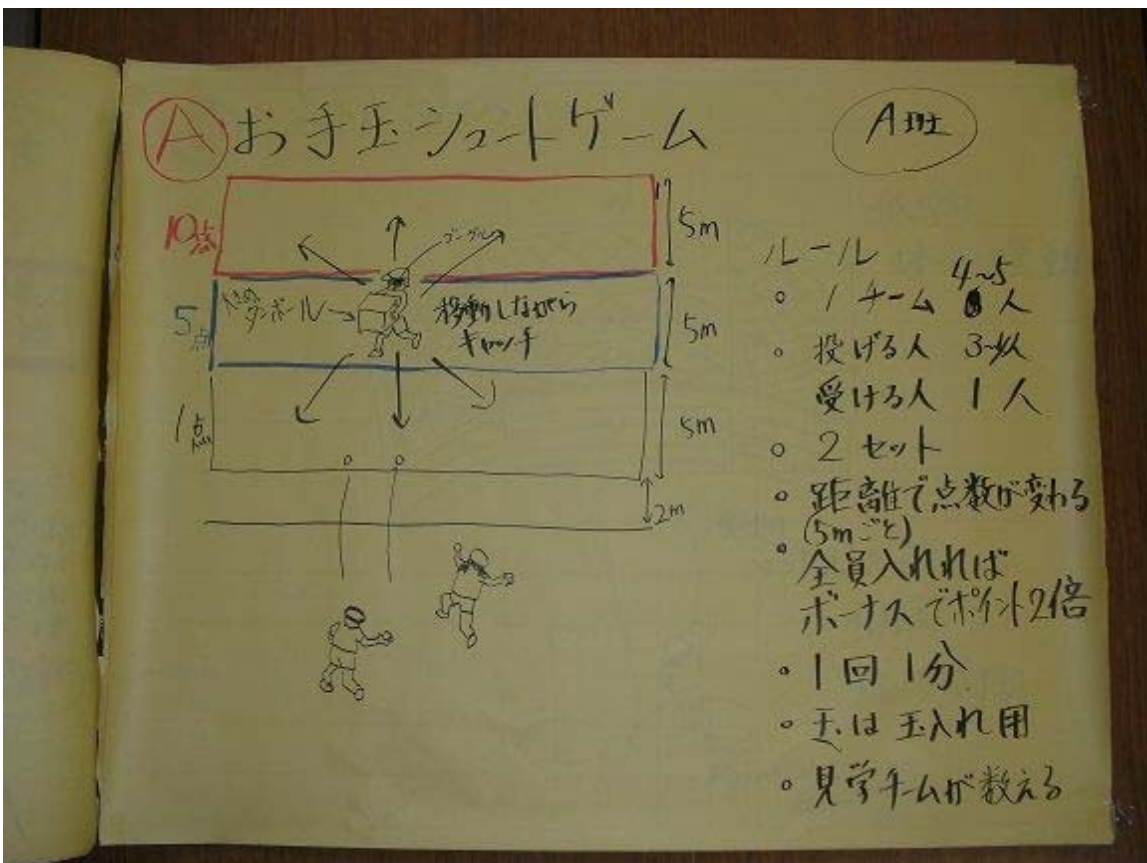 A お手玉シュートゲーム
A班
10点
5m
ゴーグル
5点
ダンボール
移動しながら
キャッチ
5m
1点
5m
2m
ルール
4~5
○ 1チーム 人
○ 投げる人 3~4人
受ける人 1人
○ 2セット
○ 距離で点数が変わる
(5mごと)
○ 全員入れれば
ボーナスでポイント2倍
○ 1回 1分
○ 玉は玉入れ用
○ 見学チームが数える